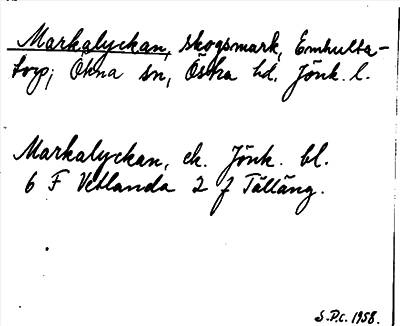 Markalyckan, skogsmark, Emhulta-
torp; Ökna sn, Östra hd, Jönk. l.
Markalyckan, ek. Jönk. bl.
6 F Vetlanda 2 f Tälläng.
S.P.C. 1958.